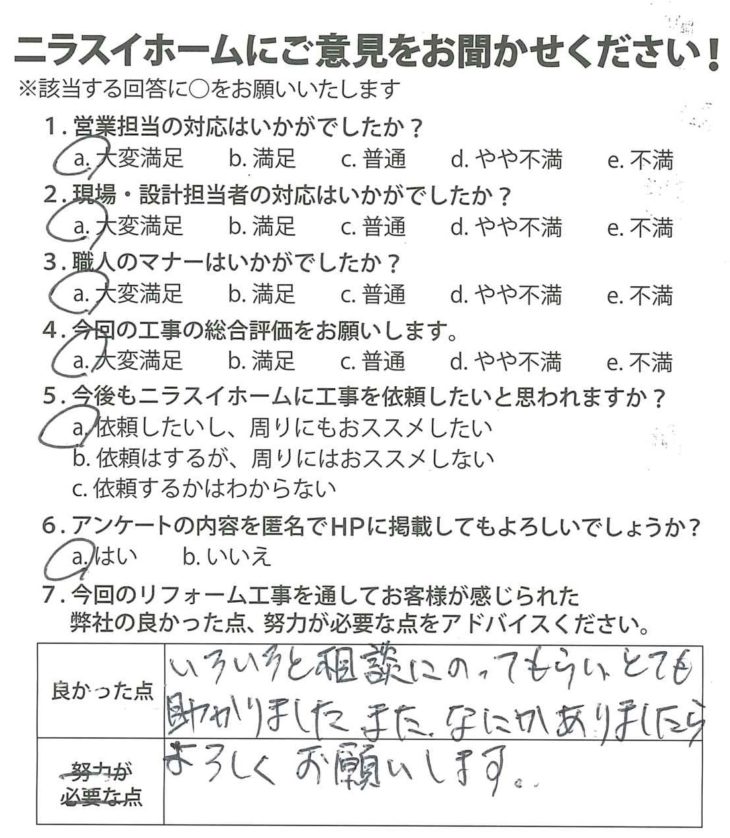 ニラスイホームにご意見をお聞かせください！
※該当する回答に○をお願いいたします
1. 営業担当の対応はいかがでしたか？
a. 大変満足 b. 満足 c. 普通 d. やや不満 e. 不満
2. 現場・設計担当者の対応はいかがでしたか？
a. 大変満足 b. 満足 c. 普通 d. やや不満 e. 不満
3. 職人のマナーはいかがでしたか？
a. 大変満足 b. 満足 c. 普通 d. やや不満 e. 不満
4. 今回の工事の総合評価をお願いします。
a. 大変満足 b. 満足 c. 普通 d. やや不満 e. 不満
5. 今後もニラスイホームに工事を依頼したいと思われますか？
a. 依頼したいし、周りにもおススメしたい
b. 依頼はするが、周りにはおススメしない
c. 依頼するかはわからない
6. アンケートの内容を匿名でHPに掲載してもよろしいでしょうか？
a. はい b. いいえ
7. 今回のリフォーム工事を通してお客様が感じられた
弊社の良かった点、努力が必要な点をアドバイスください。
良かった点
いろいろと相談にのってもらい、とても
助かりました。また、なにかありましたら
よろしくお願いします。
努力が
必要な点